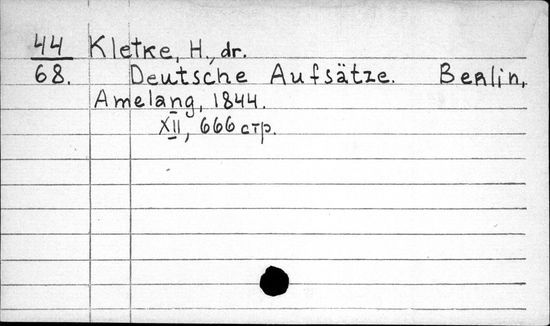 44 Kletke, H., dr.
68. Deutsche Aufsätze. Berlin,
Amelang, 1844.
XII, 666 стр.